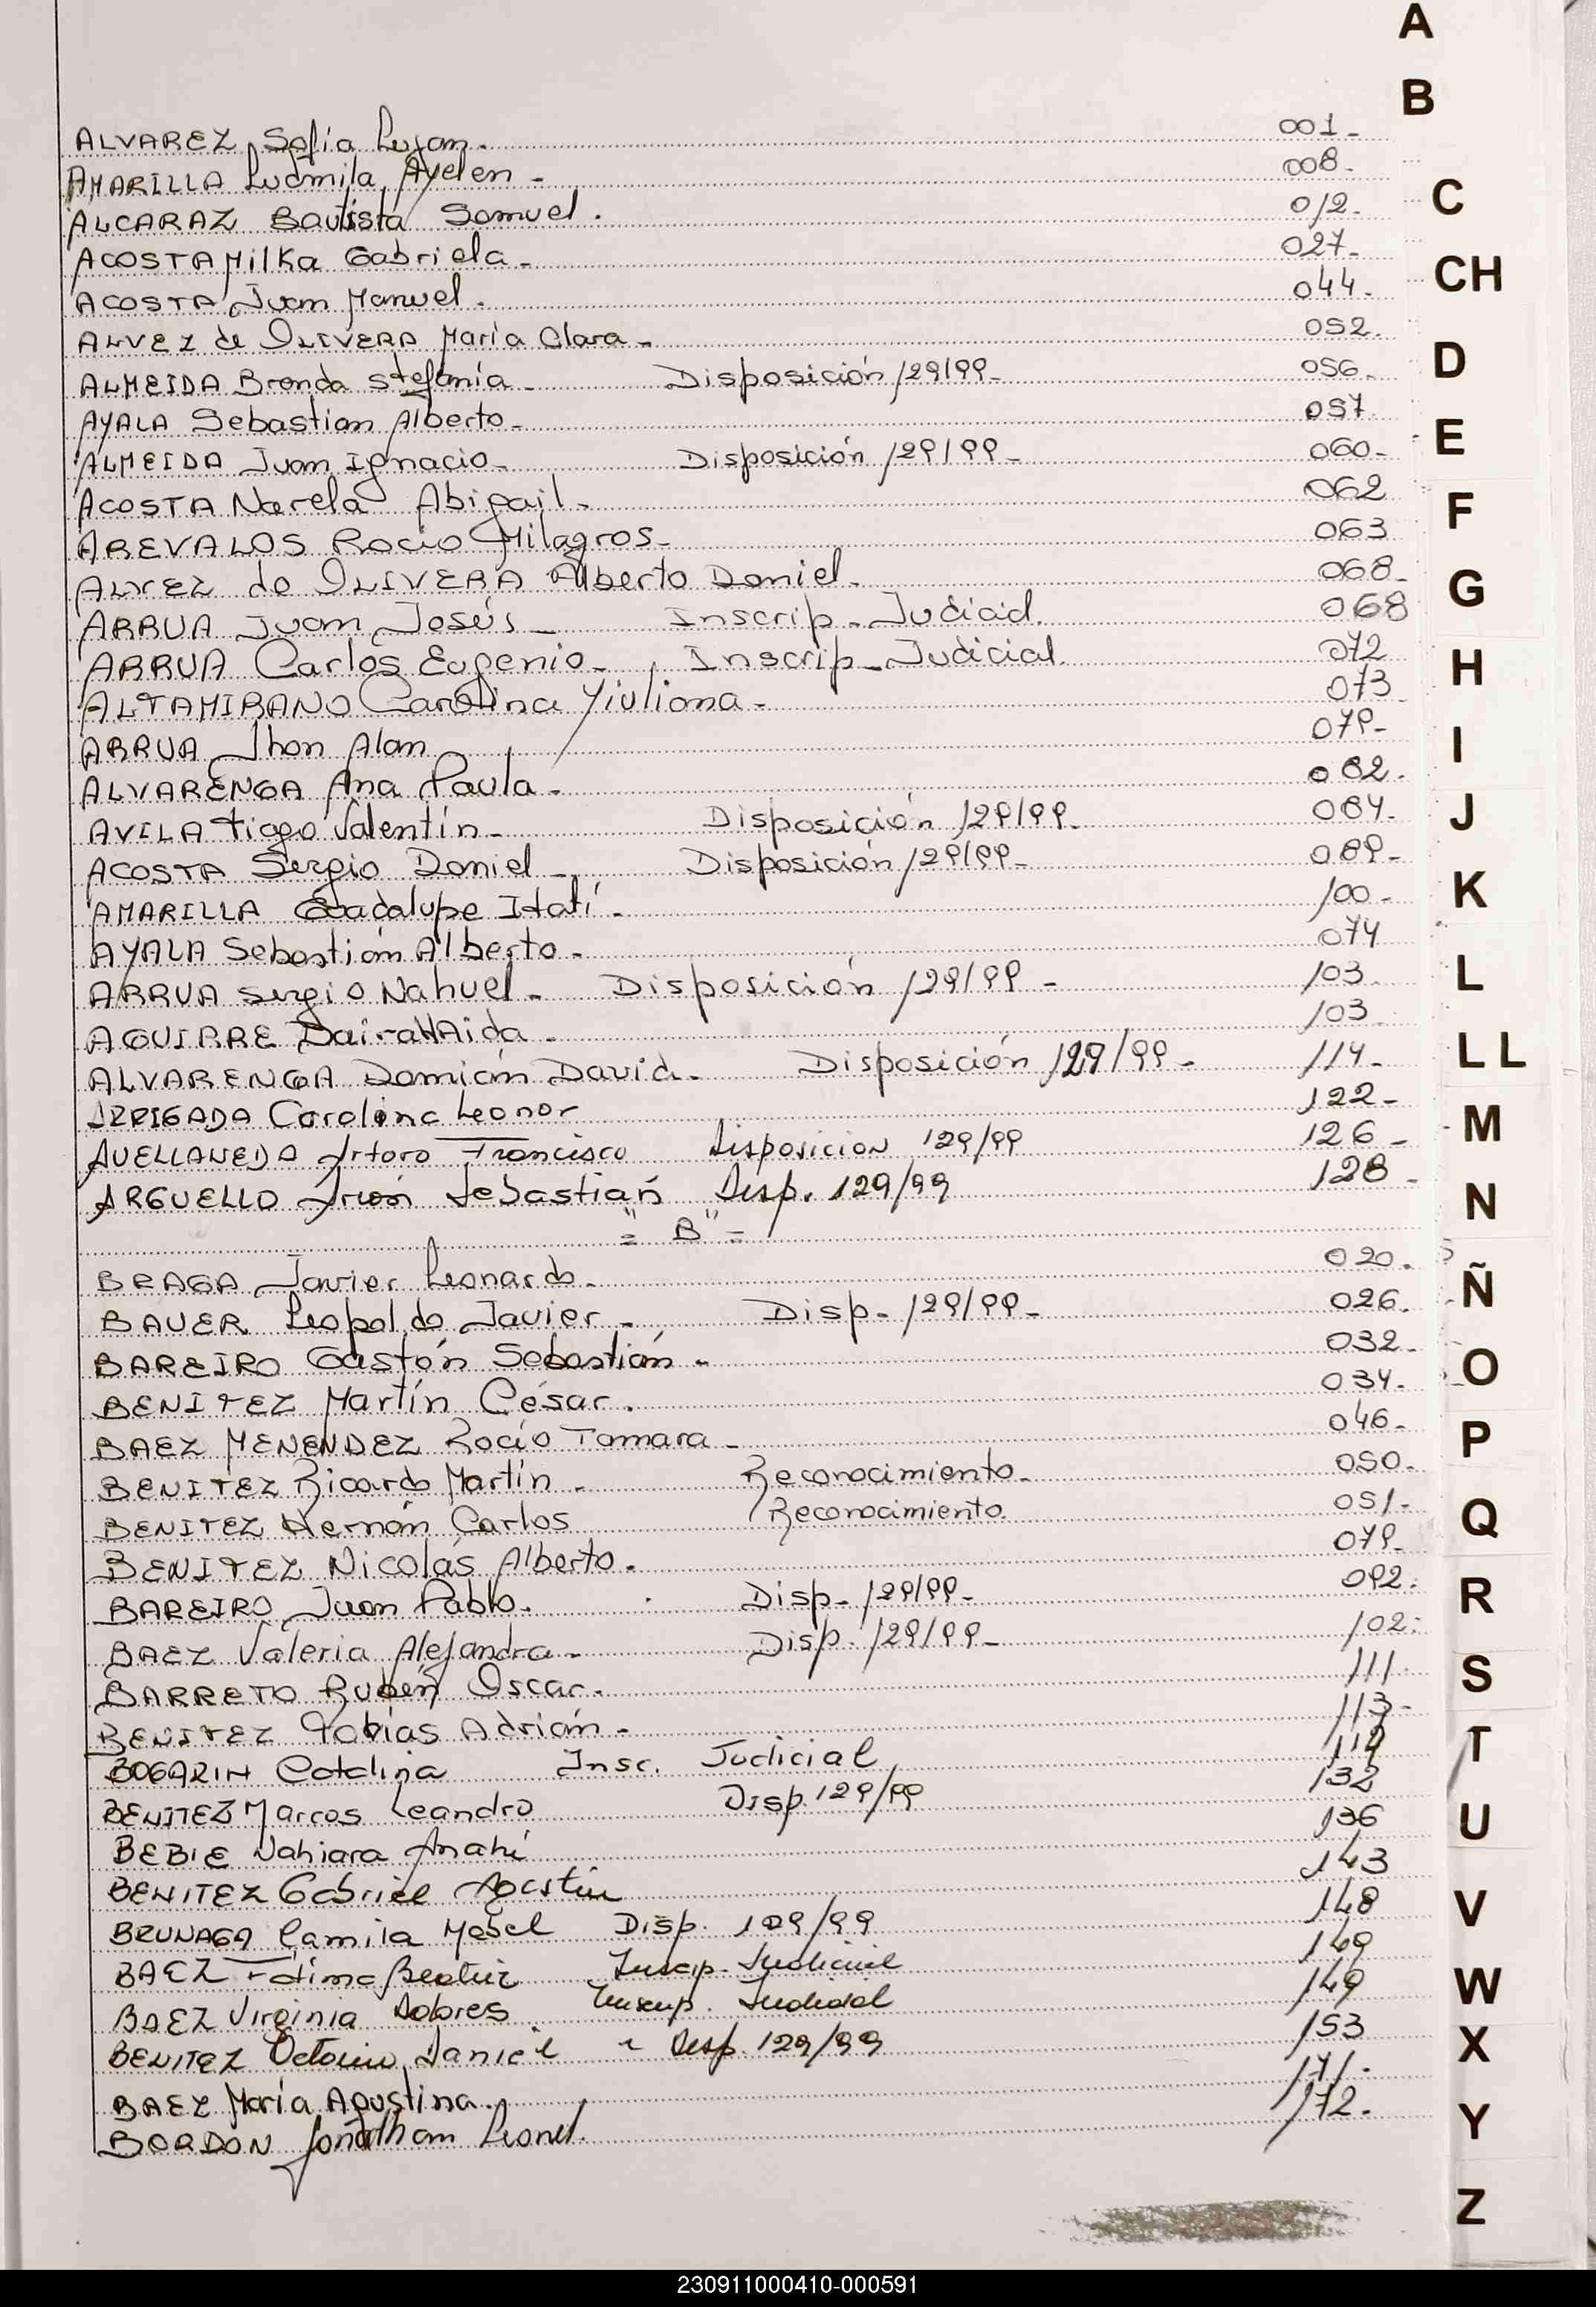 A
B
C
CH
D
E
F
G
H
I
J
K
L
LL
M
N
Ñ
O
P
Q
R
S
T
U
V
W
X
Y
Z
ALVAREZ Sofía Lujan. 001-
AMARILLA Ludmila Ayelen - 008-
ALCARAZ Bautista Samuel. 012-
ACOSTA Milka Gabriela - 027-
ACOSTA Juan Manuel. 044-
ALVEZ de OLIVERA María Clara - 052.
ALMEIDA Brenda Stefanía - Disposición 129/99- 056-
AYALA Sebastian Alberto - 057-
ALMEIDA Juan Ignacio - Disposición 129/99- 060-
ACOSTA Narela Abigail - 062
AREVALOS Rocio Milagros - 063
ALVEZ de OLIVERA Alberto Daniel - 068-
ARRUA Juan Jesús - Inscrip. Judicial. 068
ARRUA Carlos Eugenio - Inscrip. Judicial. 072
ALTAMIRANO Carolina Yiuliana - 073
ARRUA Jhon Alan 079-
ALVARENGA Ana Paula - 082.
AVILA Tiago Valentín - Disposición 129/99- 084-
ACOSTA Sergio Daniel - Disposición 129/99- 089-
AMARILLA Guadalupe Itatí - 100-
AYALA Sebastián Alberto - 074
ARRUA Sergio Nahuel - Disposición 129/99- 103
AGUIRRE - 103
ALVARENGA Damián David - Disposición 129/99- 114-
ARRIGADA Carolina Leonor 122-
AVELLANEDA Arturo Francisco Disposicion 129/99 126-
ARGUELLO Sebastian Disp. 129/99 128-
= "B" =
BRAGA Javier Leonardo - 020.
BAUER Leopoldo Javier - Disp- 129/99- 026.
BAREIRO Gastón Sebastián - 032-
BENITEZ Martín César. 034-
BAEZ MENENDEZ Rocío Tamara - 046-
BENITEZ Ricardo Martín - Reconocimiento - 050-
BENITEZ Hernán Carlos Reconocimiento. 051-
BENITEZ Nicolás Alberto. 079-
BAREIRO Juan Pablo. Disp- 129/99- 092-
BAEZ Valeria Alejandra - Disp. 129/99- 102-
BARRETO Rubén Oscar. 111-
BENITEZ Tobías Adrián - 113-
BOGARIN Catalina Insc. Judicial 119
BENITEZ Marcos Leandro Disp. 129/99 132
BEBIE Nahiara Anahí 136
BENITEZ Gabriel Agustín 143
BRUNAGA Camila Disp. 129/99 148
BAEZ Fatima Beatriz Inscrip. Judicial 149
BAEZ Virginia Dolores Inscrip. Judicial 149
BENITEZ Daniel - Disp. 129/99 153
BAEZ María Agustina. 171-
BORDON Jonatham Leonel. 172.
230911000410-000591